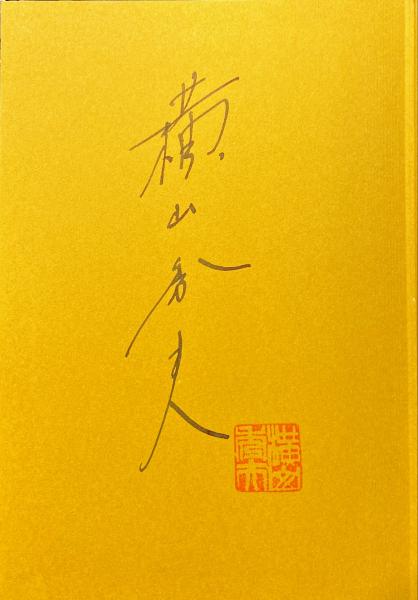 横山秀夫
横山
秀夫